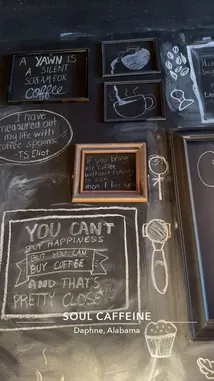 A YAWN IS
A SILENT
SCREAM FOR
Coffee
I have
measured out
my life with
coffee spoons.
-T.S. Eliot
If you bring
me coffee
without having
to ask
YOU CAN'T
BUY HAPPINESS
BUT YOU CAN
BUY COFFEE
AND THAT'S
PRETTY CLOSE
SOUL CAFFEINE
Daphne, Alabama